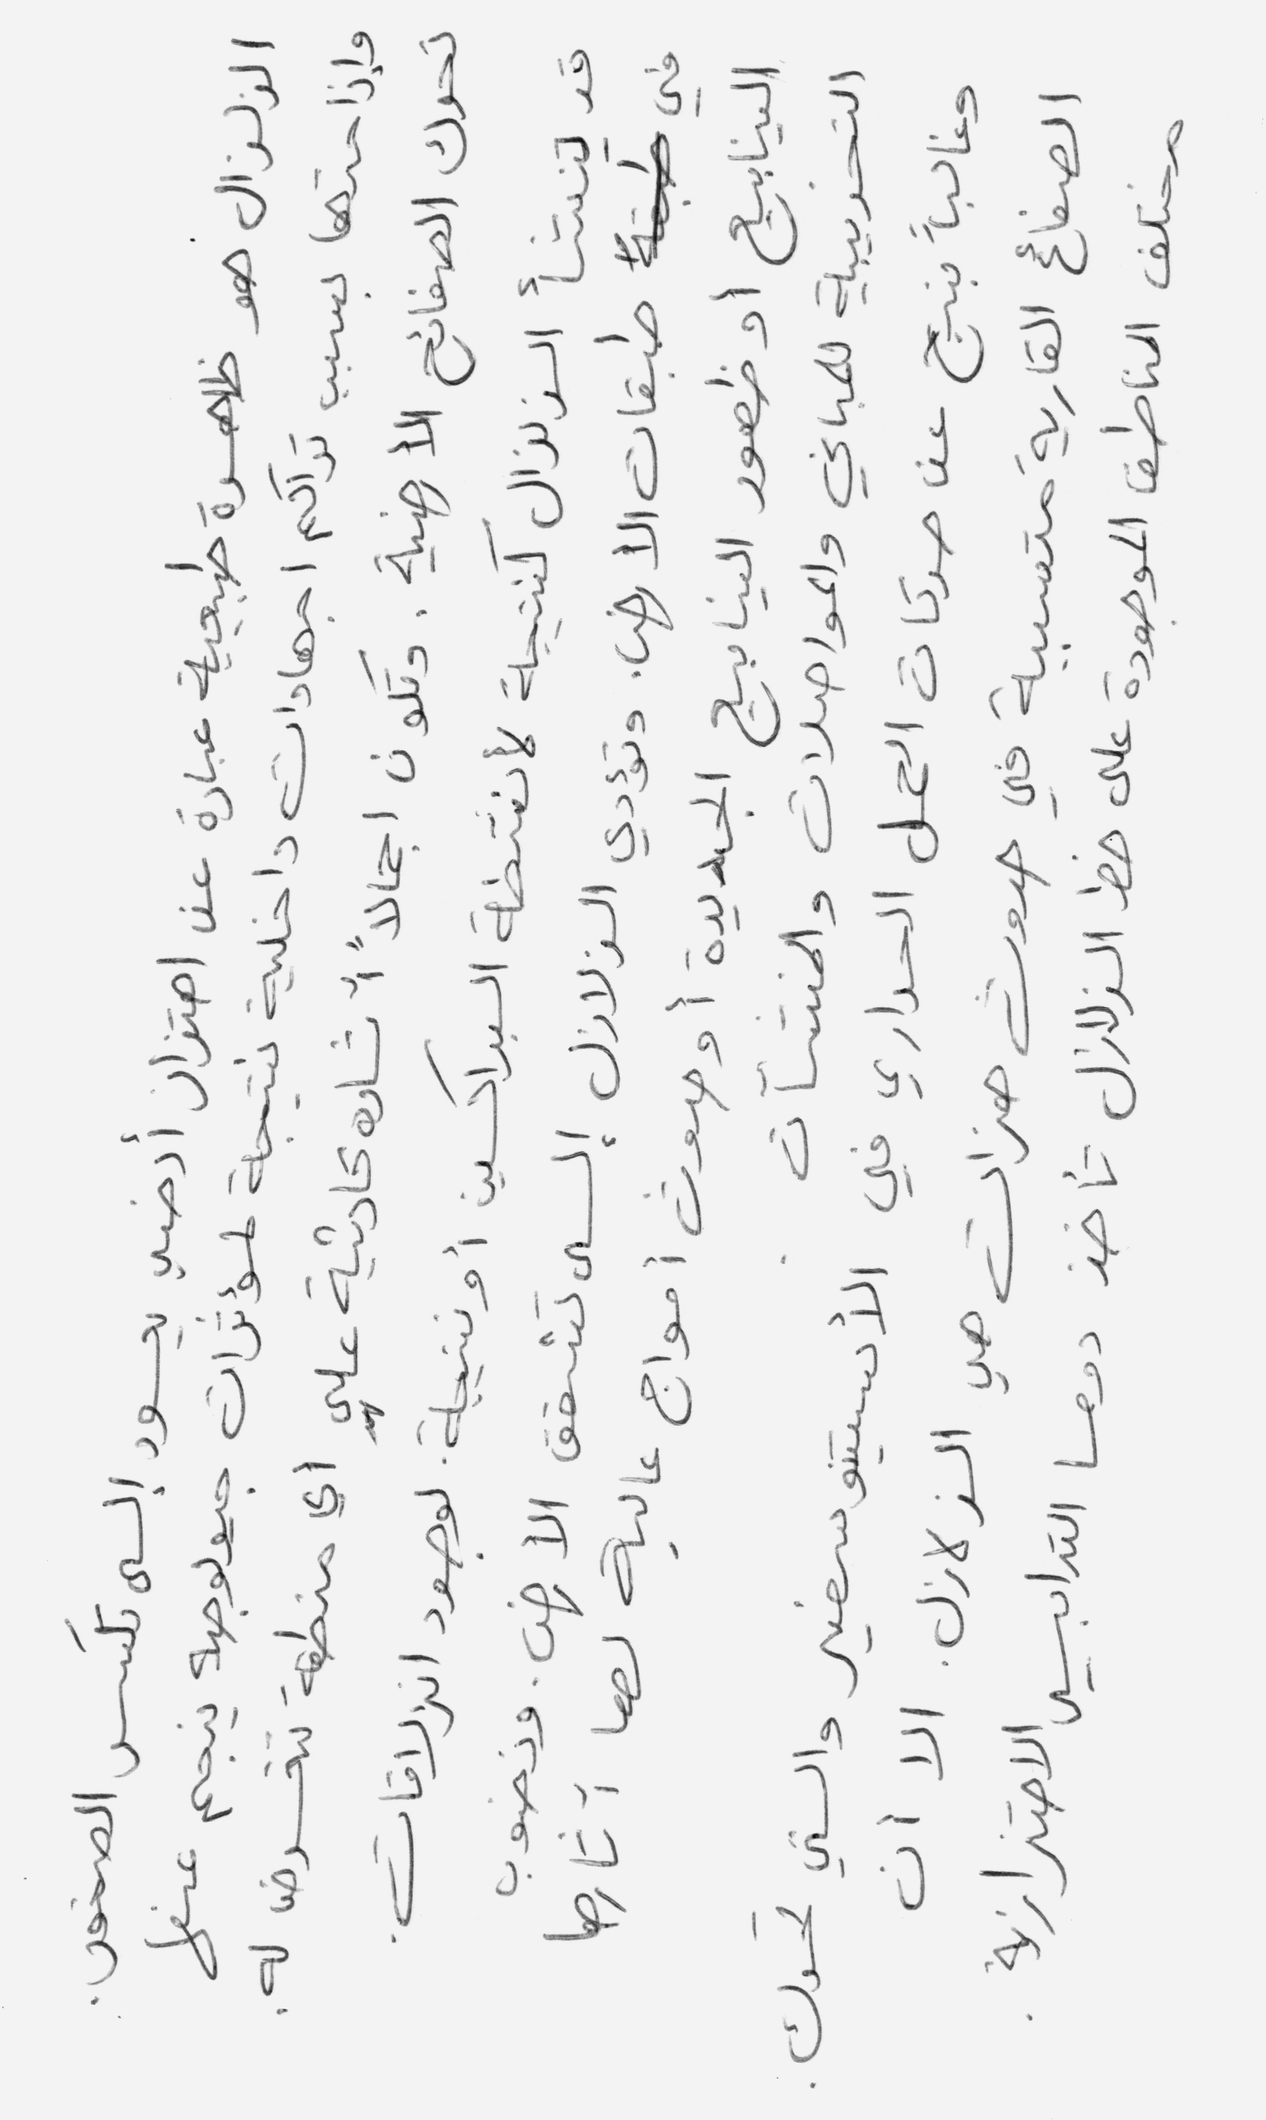 الزلزال هو ظاهرة طبيعية عبارة عن اهتزاز أرضي يعود إلى تكسر الصخور.
وإزاحتها بسبب تراكم اجهادات داخلية نتيجة لمؤثرات جيولوجية ينجم عنها
تحرك الصفائح الأرضية. وتكون اجمالاً آثاره كارثية على أي منطقة تتعرض له.
قد تنشأ الزلازل كنتيجة لأنشطة البراكين أو نتيجة. لوجود انزلاقات.
في طبقات الأرض. وتؤدي الزلازل إلى تشقق الأرض. ونضوب
الينابيع أو ظهور الينابيع الجديدة أو حدوث أمواج عالية لها آثارها
التخريبية للمباني والمواصلات والمنشآت.
وغالباً ينتج عن حركات الحمل الحراري في الأستينوسفير والتي تحرك.
الصفائح القارية متسببة في حدوث هزات هي الزلازل. الا أن
مختلف المناطق الموجودة على خط الزلازل تأخذ دوما التدابير الاهتزازية.